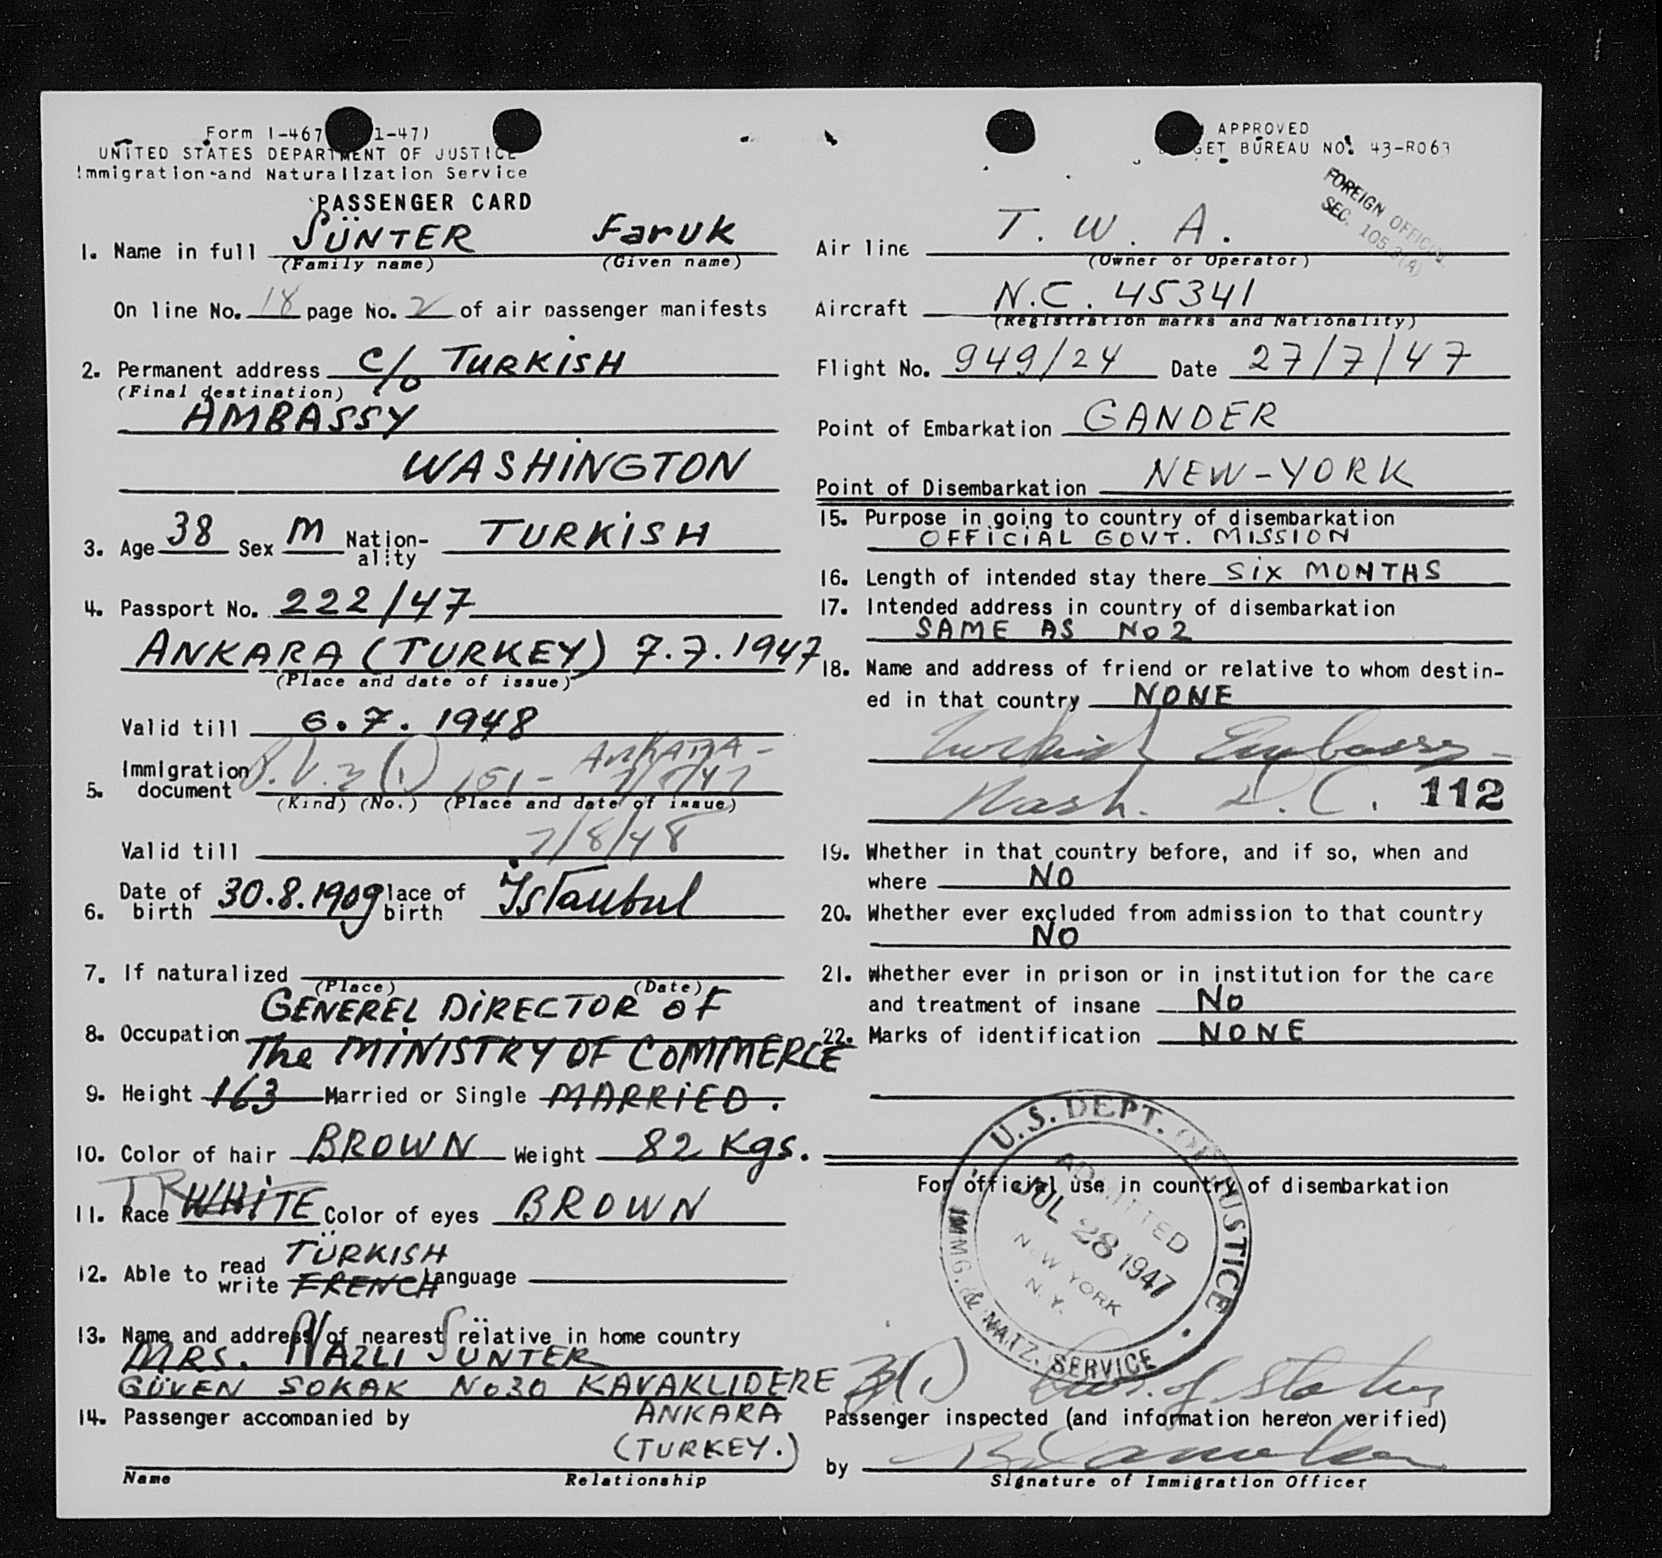 Form I-467 1-47)
UNITED STATES DEPARTMENT OF JUSTICE
Immigration and Naturalization Service
PASSENGER CARD
1. Name in full SÜNTER Faruk
(Family name) (Given name)
On line No. 18 page No. 2 of air passenger manifests
2. Permanent address C/o TURKISH
(Final destination)
AMBASSY
WASHINGTON
3. Age 38 Sex M Nation-ality TURKISH
4. Passport No. 222/47
ANKARA (TURKEY) 7.7.1947
(Place and date of issue)
Valid till 6.7.1948
5. Immigration document 3(1) 151- ANKARA-
(Kind) (No.) (Place and date of issue)
Valid till 7/8/48
6. Date of birth 30.8.1909 lace of birth İstanbul
7. If naturalized
(Place) (Date)
GENEREL DIRECTOR OF
8. Occupation The MINISTRY OF COMMERCE
9. Height 163 Married or Single MARRIED.
10. Color of hair BROWN Weight 82 Kgs.
TR
11. Race WHITE Color of eyes BROWN
12. Able to read TÜRKISH
write FRENCH Language
13. Name and address of nearest relative in home country
MRS. NAZLI SÜNTER
GÜVEN SOKAK No30 KAVAKLIDERE
14. Passenger accompanied by ANKARA
(TURKEY.)
Name Relationship
APPROVED
GET BUREAU NO. 43-R063
FOREIGN OFFICIAL
SEC. 105.3(4)
Air line T.W.A.
(Owner or Operator)
Aircraft N.C. 45341
(Registration marks and Nationality)
Flight No. 949/24 Date 27/7/47
Point of Embarkation GANDER
Point of Disembarkation NEW-YORK
15. Purpose in going to country of disembarkation
OFFICIAL GOVT. MISSION
16. Length of intended stay there SIX MONTHS
17. Intended address in country of disembarkation
SAME AS No 2
18. Name and address of friend or relative to whom destin-
ed in that country NONE
Turkish Embassy -
Wash. D.C. 112
19. Whether in that country before, and if so, when and
where NO
20. Whether ever excluded from admission to that country
NO
21. Whether ever in prison or in institution for the care
and treatment of insane No
22. Marks of identification NONE
For official use in country of disembarkation
U.S. DEPT. OF JUSTICE
ADMITTED
JUL 28 1947
NEW YORK
N.Y.
IMMG. & NATZ. SERVICE
3(1) of status
Passenger inspected (and information hereon verified)
by
Signature of Immigration Officer